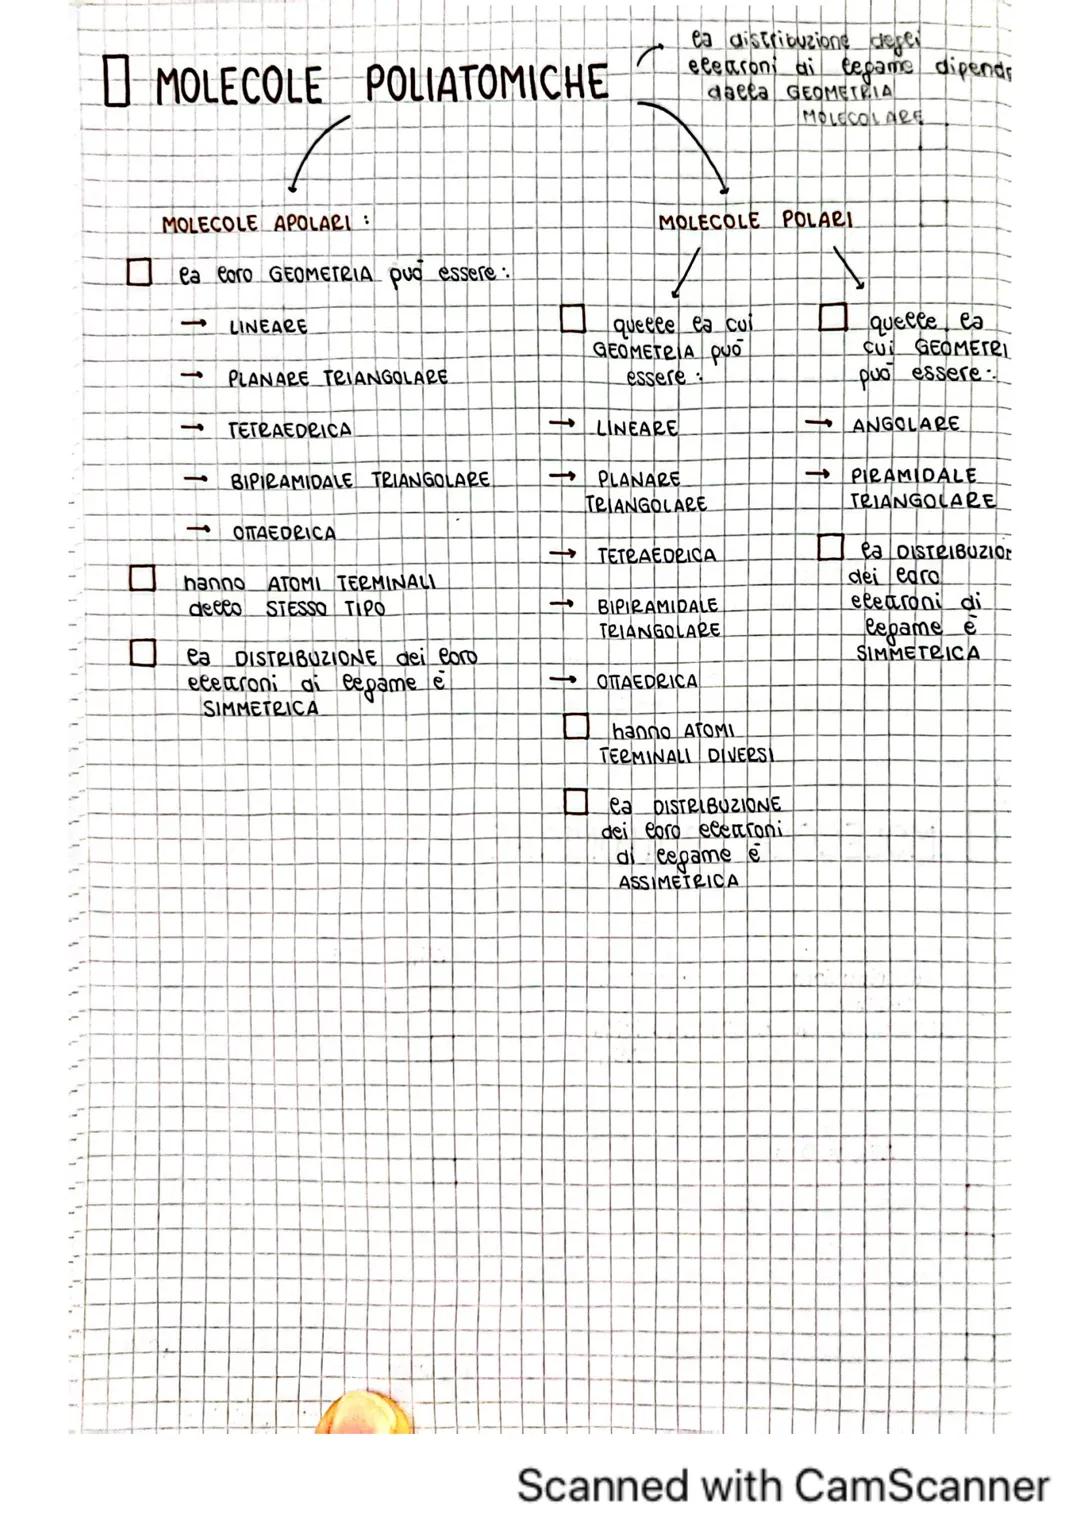 MOLECOLE POLIATOMICHE
la distribuzione degli
elettroni di legame dipende
dalla GEOMETRIA
MOLECOLARE
MOLECOLE APOLARI :
la loro GEOMETRIA può essere :
→ LINEARE
→ PLANARE TRIANGOLARE
→ TETRAEDRICA
→ BIPIRAMIDALE TRIANGOLARE
→ OTTAEDRICA
hanno ATOMI TERMINALI
dello STESSO TIPO
la DISTRIBUZIONE dei loro
elettroni di legame è
SIMMETRICA
MOLECOLE POLARI
quelle la cui
GEOMETRIA può
essere :
→ LINEARE
→ PLANARE
TRIANGOLARE
→ TETRAEDRICA
→ BIPIRAMIDALE
TRIANGOLARE
→ OTTAEDRICA
hanno ATOMI
TERMINALI DIVERSI
la DISTRIBUZIONE
dei loro elettroni
di legame è
ASSIMETRICA
quelle la
cui GEOMETRI
può essere :
→ ANGOLARE
→ PIRAMIDALE
TRIANGOLARE
la DISTRIBUZION
dei loro
elettroni di
legame è
SIMMETRICA
Scanned with CamScanner